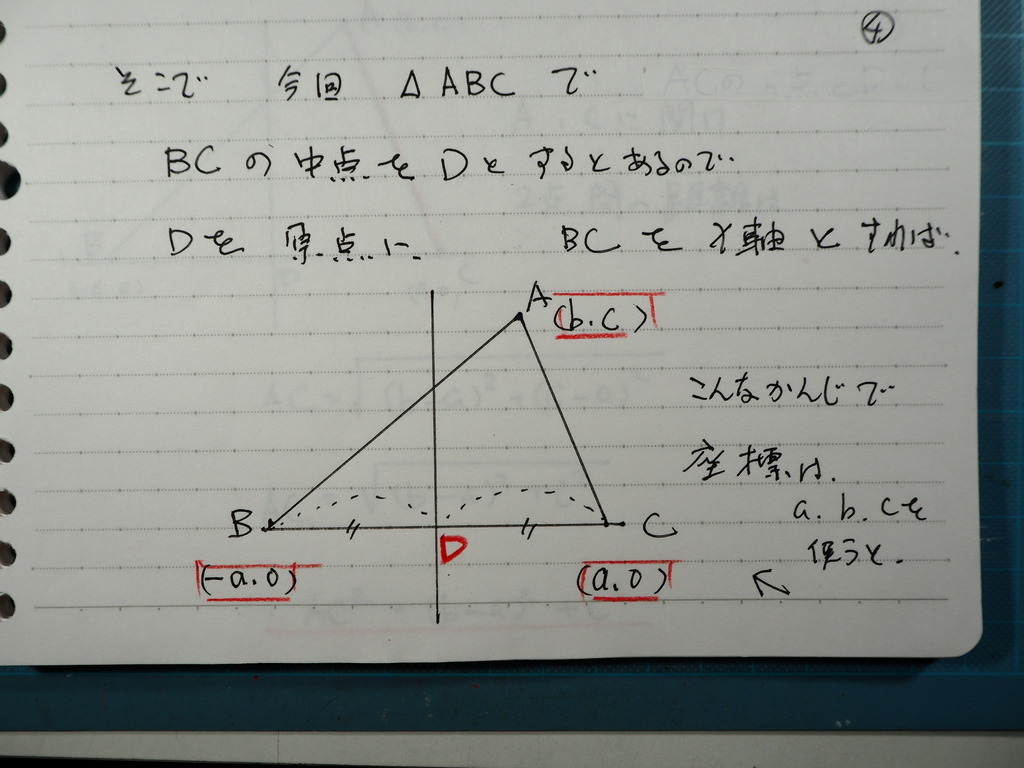 ④
そこで 今回 △ABC で
BCの中点をDとするとあるので.
Dを原点に BCをx軸とすれば.
A
(b.c)
こんなかんじで
座標は.
a.b.cを
使うと.
B
C
D
(-a.0)
(a.0)